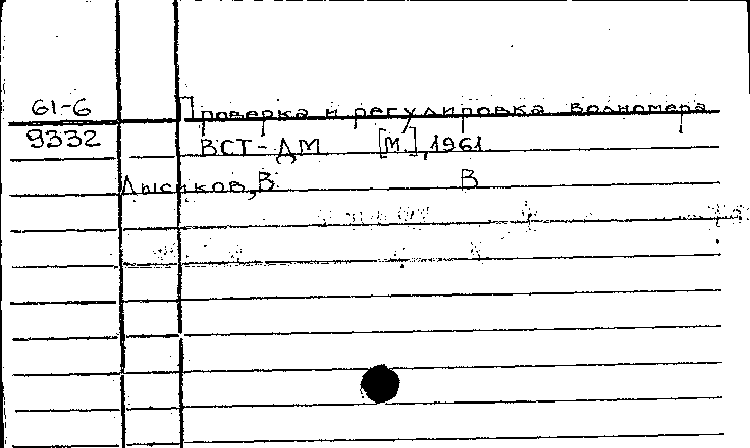 61-6 Проверка и регулировка волномера
9332 ВСТ-ДМ [М.], 1961
Лысиков, В В